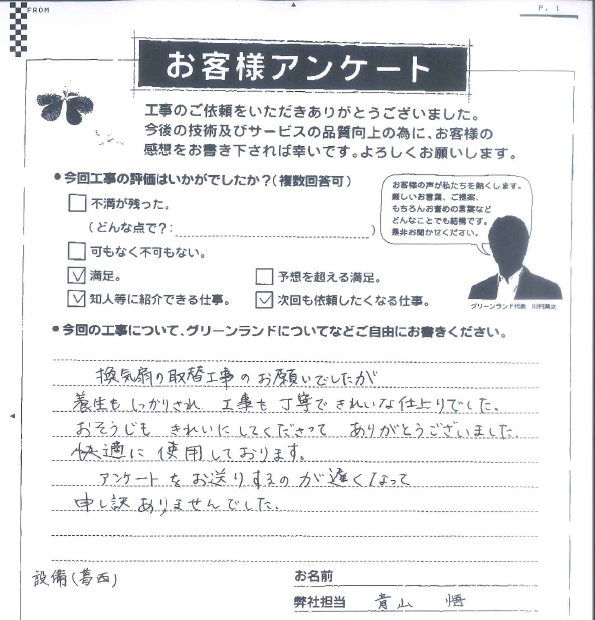 FROM
P. 1
お客様アンケート
工事のご依頼をいただきありがとうございました。
今後の技術及びサービスの品質向上の為に、お客様の
感想をお書き下されば幸いです。よろしくお願いします。
●今回工事の評価はいかがでしたか?(複数回答可)
不満が残った。
(どんな点で?: )
可もなく不可もない。
満足。
予想を超える満足。
知人等に紹介できる仕事。
次回も依頼したくなる仕事。
お客様の声が私たちを熱くします。
厳しいお言葉、ご提案、
もちろんお誉めの言葉など
どんなことでも結構です。
是非お聞かせください。
グリーンランド代表
●今回の工事について、グリーンランドについてなどご自由にお書きください。
換気扇の取替工事のお願いでしたが
養生もしっかりされ 工事も丁寧できれいな仕上りでした。
おそうじも きれいにしてくださって ありがとうございました。
快適に使用しております。
アンケートをお送りするのが遅くなって
申し訳ありませんでした。
設備(葛西)
お名前
弊社担当 青山 悟